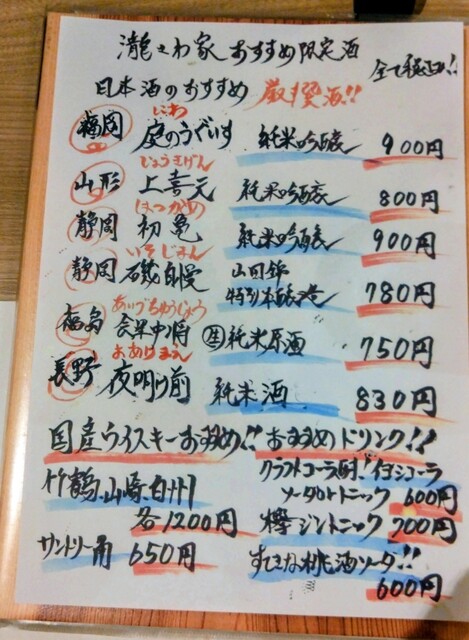 瀧さわ家おすすめ限定酒 全て税込!!
日本酒のおすすめ 厳撰酒!!
福岡 庭のうぐいす にわ 純米吟醸 900円
山形 上喜元 じょうきげん 純米吟醸 800円
静岡 初亀 はつかめ 純米吟醸 900円
静岡 磯自慢 いそじまん 山田錦 特別本醸造 780円
福島 会津中将 あいづちゅうじょう 生 純米原酒 750円
長野 夜明け前 よあけまえ 純米酒 830円
国産ウイスキーおすすめ!!
竹鶴、山崎、白州
各1200円
サントリー角 650円
おすすめドリンク!!
クラフトコーラ酎!イヨシコーラ
ソーダorトニック 600円
欅ジントニック 700円
すてきな桃酒ソーダ!!
600円